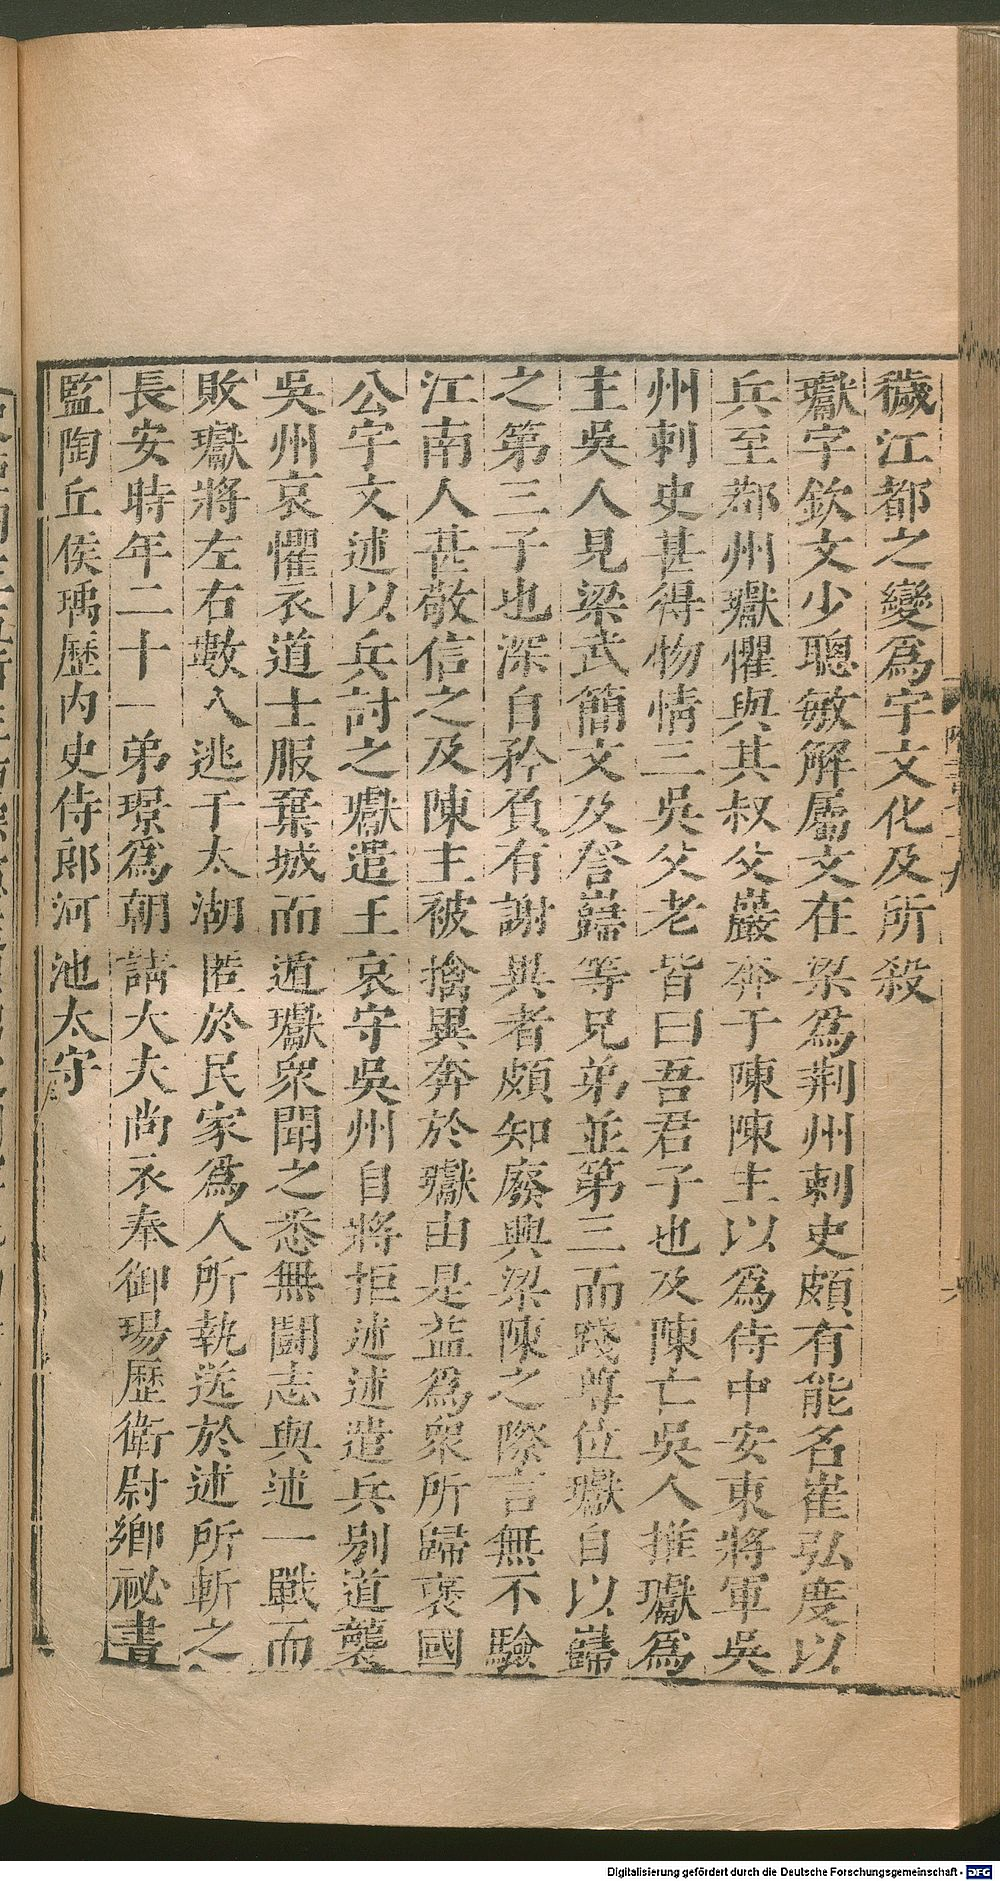 穢江都之變爲宇文化及所殺
瓛字欽文少聰敏解屬文在梁爲荆州刺史頗有能名崔弘度以
兵至鄀州瓛懼與其叔父巖奔于陳陳主以爲侍中安東將軍吳
州刺史甚得物情三吳父老皆曰吾君子也及陳亡吳人推瓛爲
主吳人見梁武簡文及詧巋等兄弟並第三而踐尊位瓛自以巋
之第三子也深自矜負有謝異者頗知廢興梁陳之際言無不驗
江南人甚敬信之及陳主被擒異奔於瓛由是益爲衆所歸褒國
公宇文述以兵討之瓛遣王哀守吳州自將拒述述遣兵別道襲
吳州哀懼衣道士服棄城而遁瓛衆聞之悉無鬬志與述一戰而
敗瓛將左右數人逃于太湖匿於民家爲人所執送於述所斬之
長安時年二十一弟璟爲朝請大夫尚衣奉御瑒歷衛尉卿祕書
監陶丘侯瑀歷内史侍郎河池太守
Digitalisierung gefördert durch die Deutsche Forschungsgemeinschaft - DFG